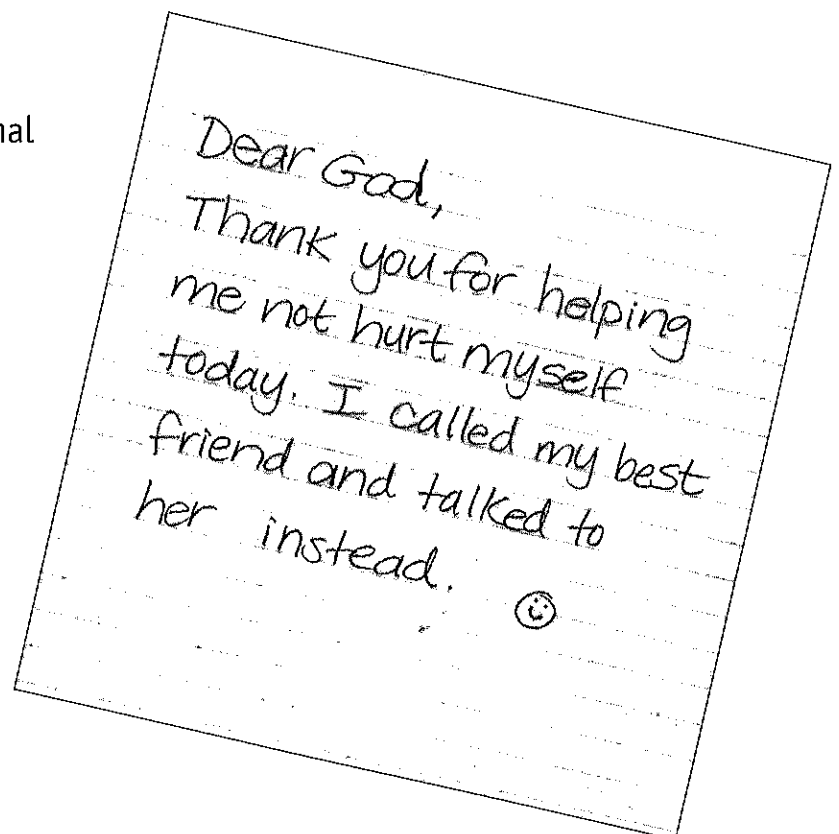 nal
Dear God,
Thank you for helping
me not hurt myself
today. I called my best
friend and talked to
her instead.